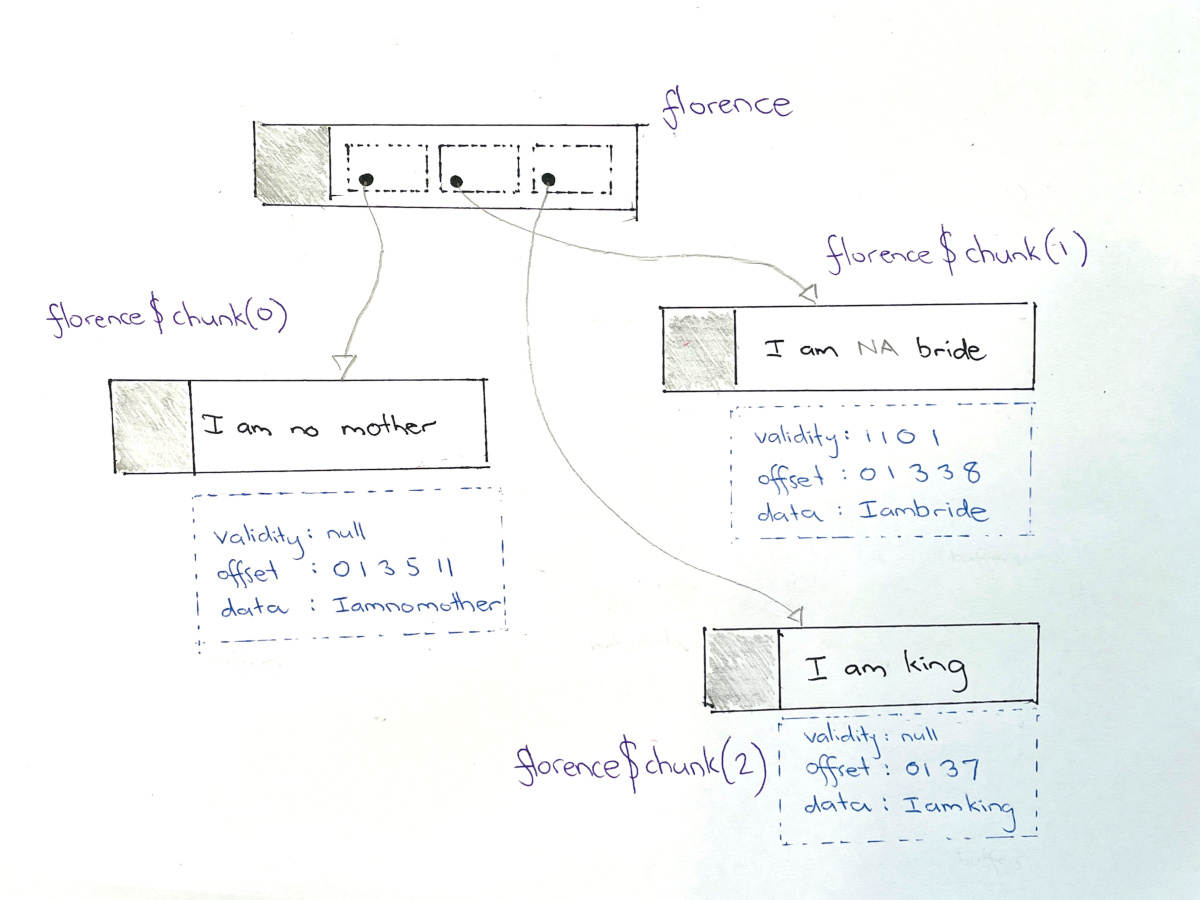 florence
florence$chunk(0)
I am no mother
validity: null
offset : 0 1 3 5 11
data : Iamnomother
florence$chunk(1)
I am NA bride
validity: 1 1 0 1
offset : 0 1 3 3 8
data : Iambride
florence$chunk(2)
I am king
validity: null
offset : 0 1 3 7
data : Iamking